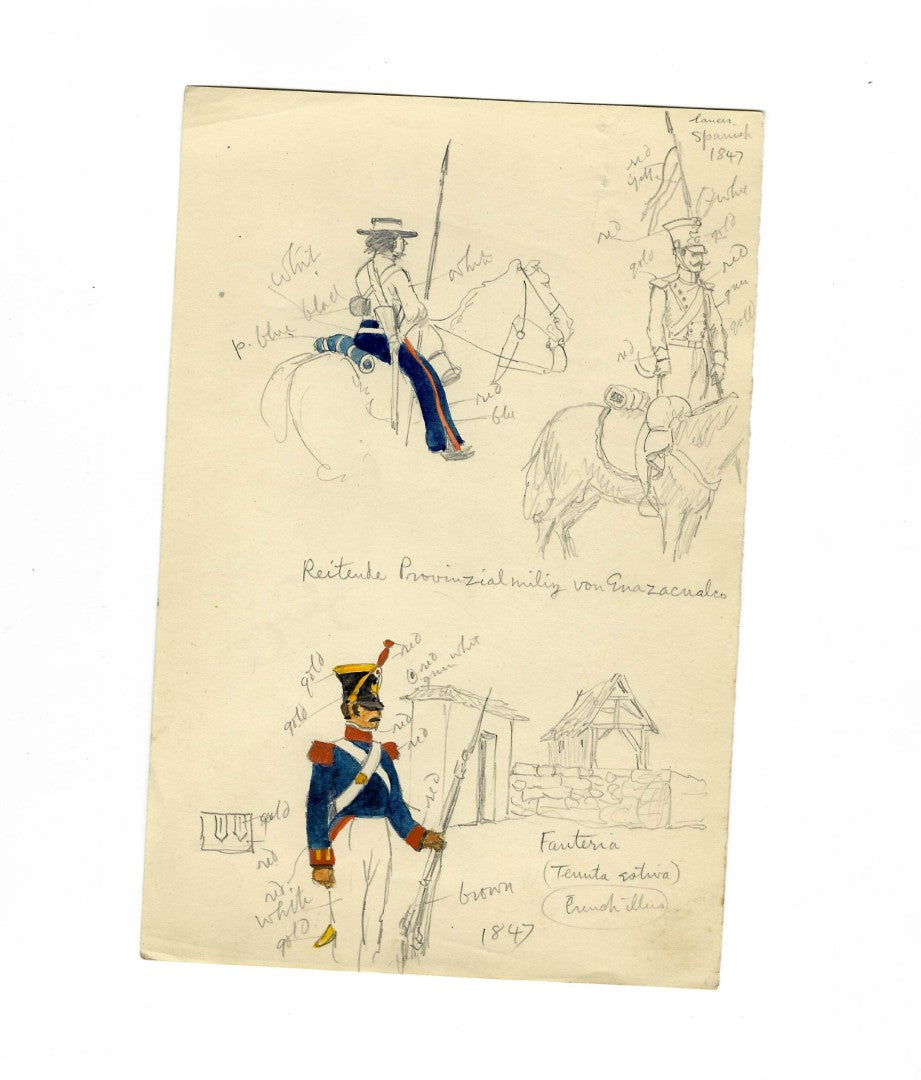 lancer
Spanish
1847
red
white
red
gold
gold
red
white
white
green
black
gold
p. blue
red
red
blue
Reitende Provinzialmiliz von Guazacualco
red
gold
red
white
green
gold
red
red
red
gold
Fanteria
red
(Tenuta estiva)
red
white
brown
gold
1847